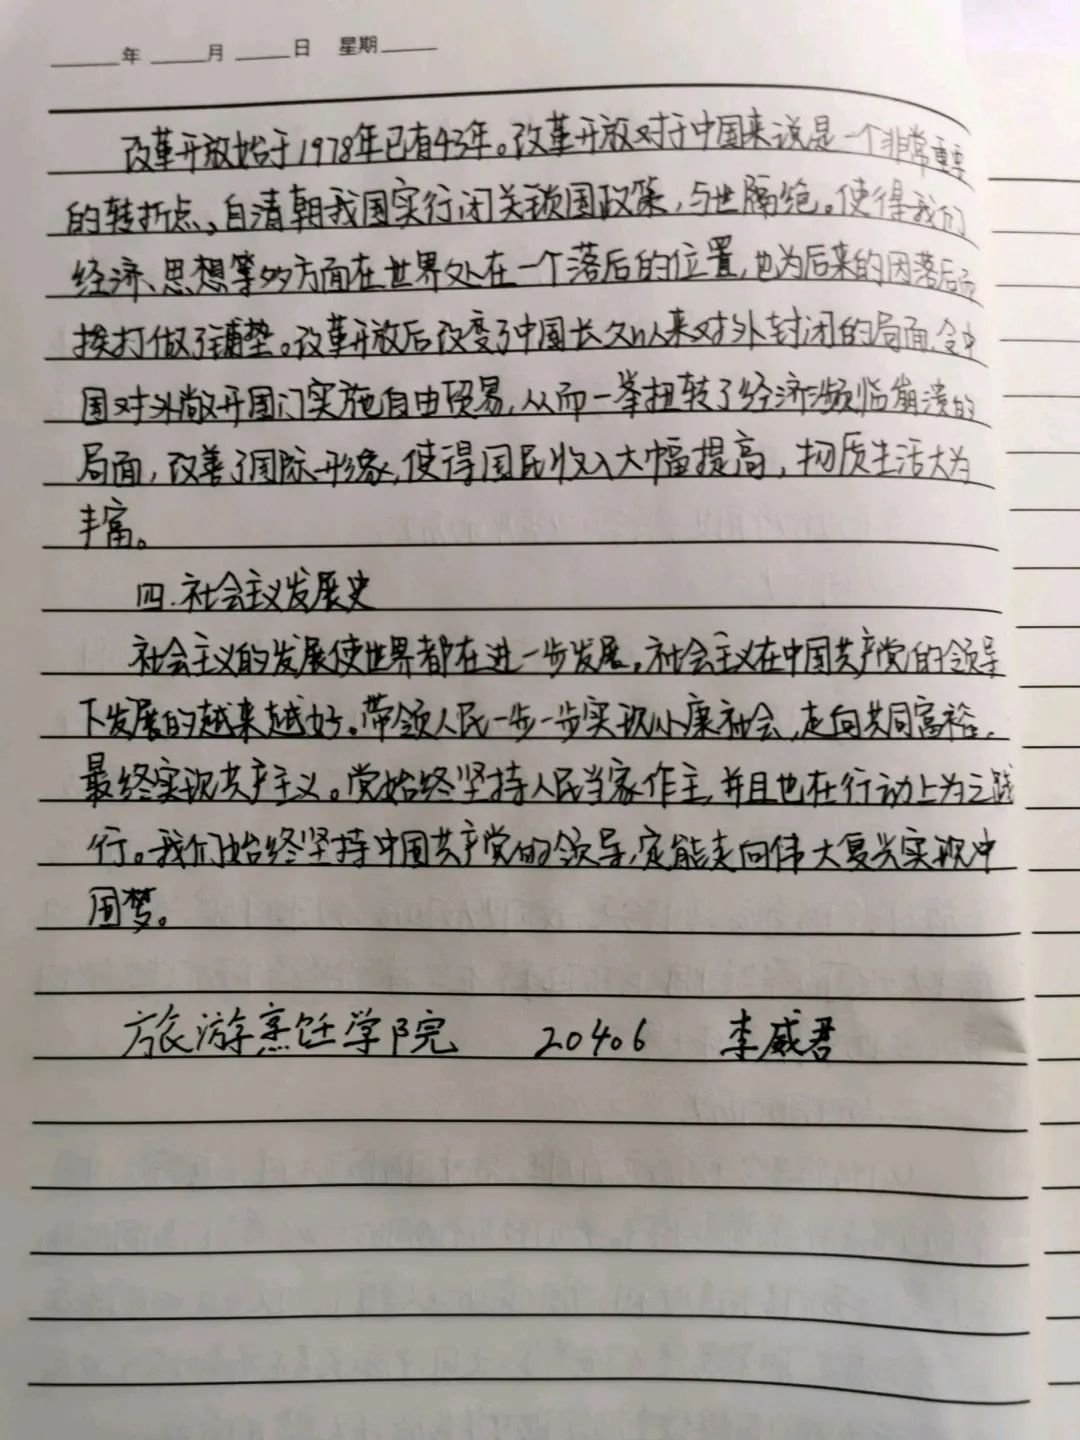 年 月 日 星期
改革开放始于1978年已有43年。改革开放对于中国来说是一个非常重要
的转折点、自清朝我国实行闭关锁国政策,与世隔绝。使得我们
经济、思想等多方面在世界处在一个落后的位置,也为后来的因落后而
挨打做了铺垫。改革开放后改变了中国长久以来对外封闭的局面,令中
国对外敞开国门实施自由贸易,从而一举扭转了经济濒临崩溃的
局面,改善了国际形象,使得国民收入大幅提高,物质生活大为
丰富。
四.社会主义发展史
社会主义的发展使世界都在进一步发展。社会主义在中国共产党的领导
下发展的越来越好。带领人民一步一步实现小康社会,走向共同富裕,
最终实现共产主义。党始终坚持人民当家作主,并且也在行动上为之践
行。我们始终坚持中国共产党的领导,定能走向伟大复兴实现中
国梦。
旅游烹饪学院 20406 李威君